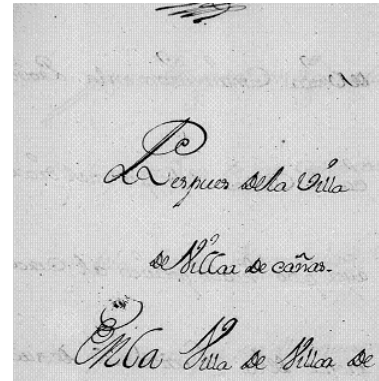 Respues dela Villa
de Villar de cañas.
En la Villa de Villar de